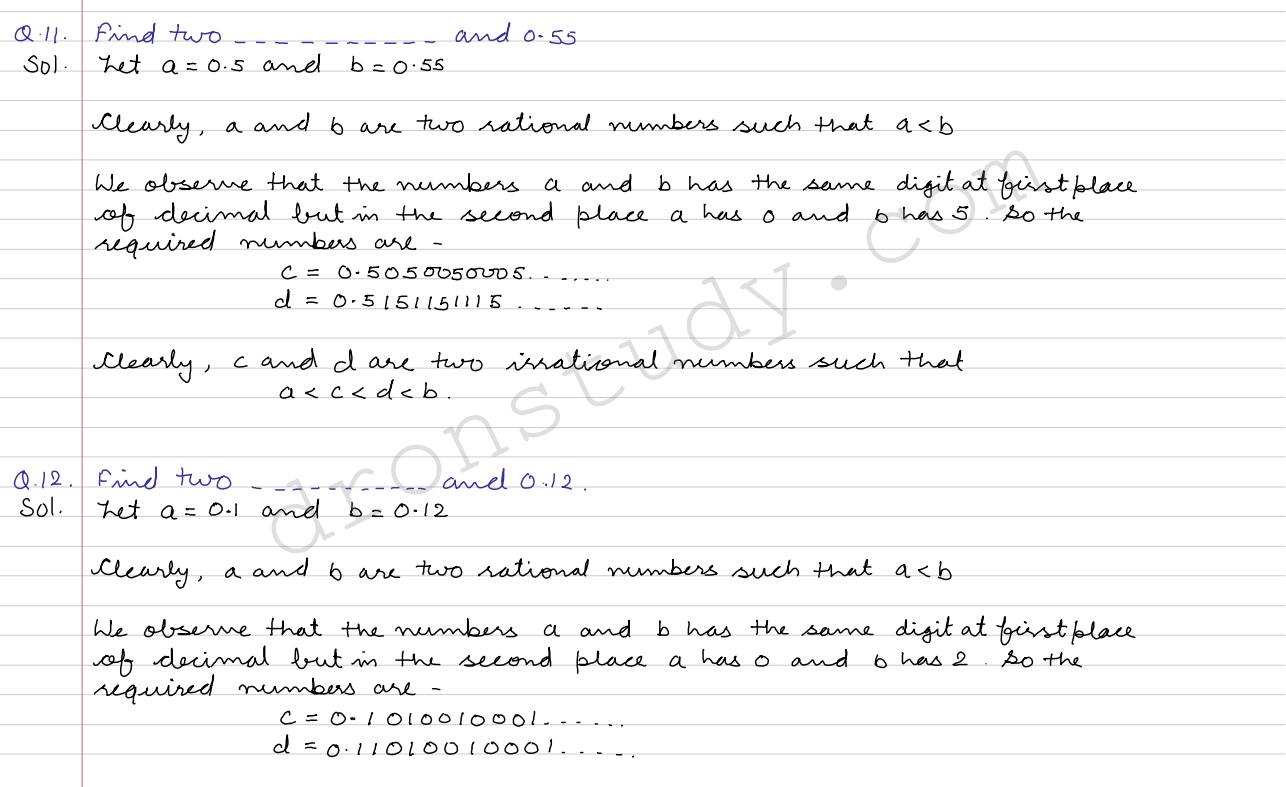 Q.11. Find two _ _ _ _ _ _ _ _ _ _ and 0.55
Sol. Let a = 0.5 and b = 0.55
Clearly, a and b are two rational numbers such that a < b
We observe that the numbers a and b has the same digit at first place
of decimal but in the second place a has 0 and b has 5. So the
required numbers are -
c = 0.5050050005.......
d = 0.5151151115.......
Clearly, c and d are two irrational numbers such that
a < c < d < b.
Q.12. Find two _ _ _ _ _ _ _ _ _ _ and 0.12.
Sol. Let a = 0.1 and b = 0.12
Clearly, a and b are two rational numbers such that a < b
We observe that the numbers a and b has the same digit at first place
of decimal but in the second place a has 0 and b has 2. So the
required numbers are -
c = 0.1010010001......
d = 0.11010010001.....
dronstudy.com